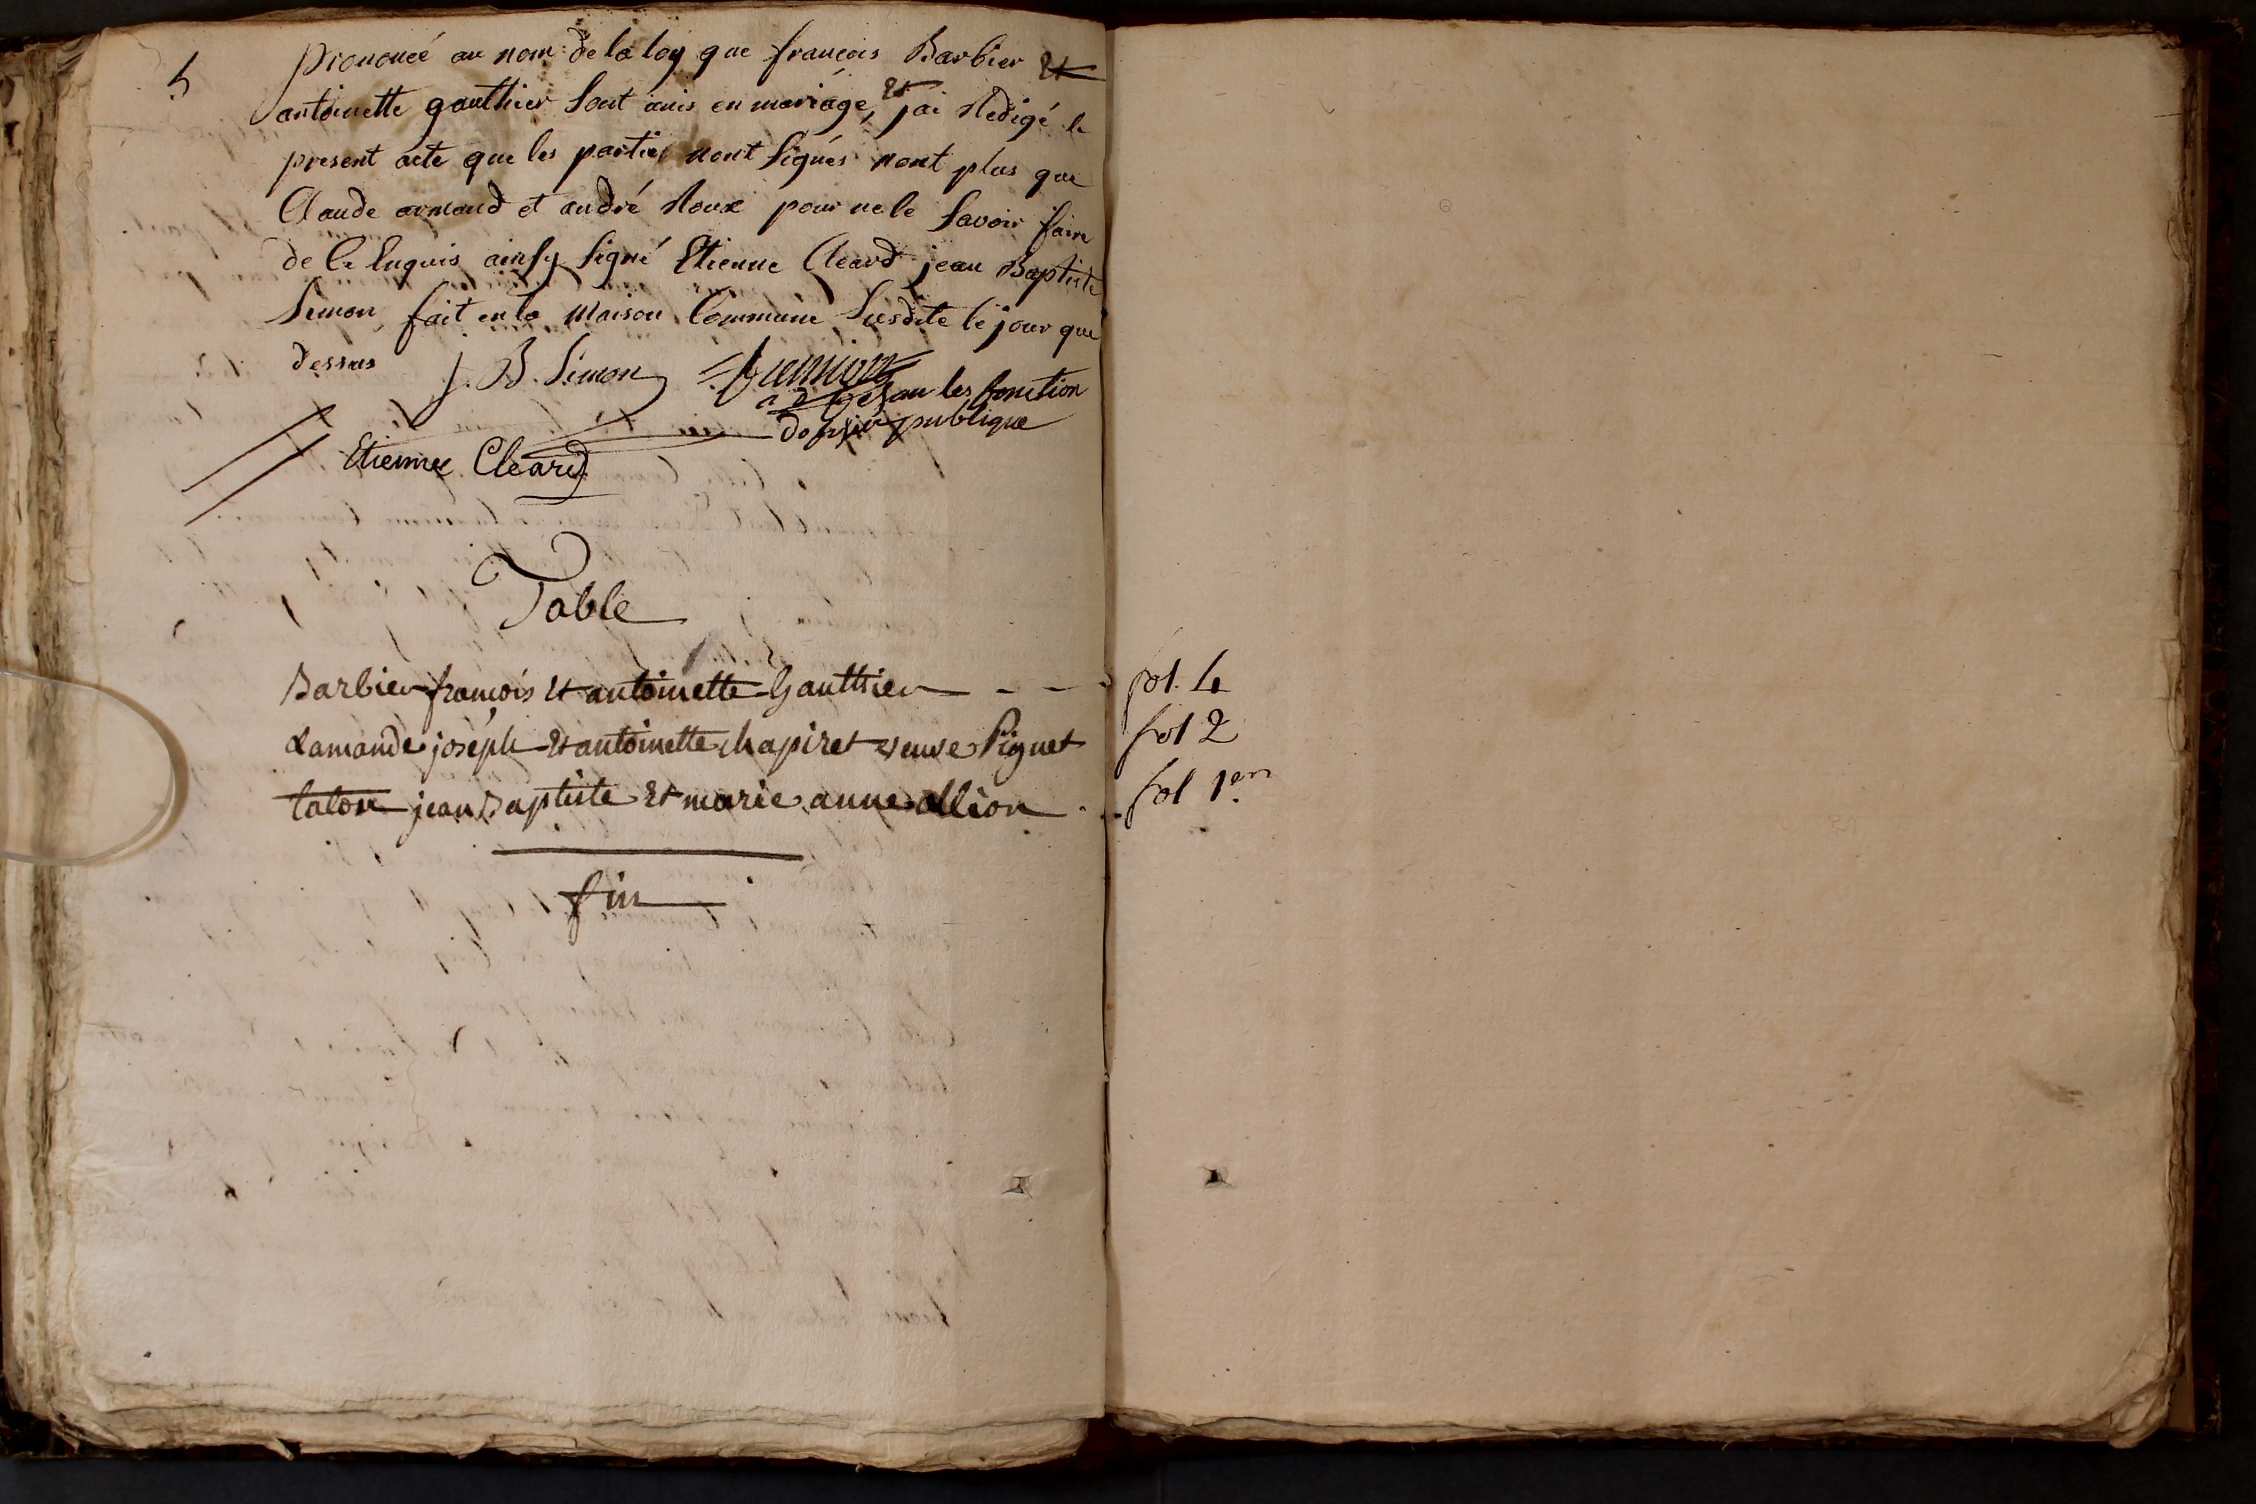 5
prononcé au nom de la loy que françois Barbier Et
antoinette gauthier sont unis en mariage, Et jai Redigé le
present acte que les parties nont signés nont plus que
Claude armand et andré Roux pour ne le savoir faire
de Ce Enquis ainsy signé Etienne Cleard jean Baptiste
Simon fait en la Maison Commune susdite le jour que
dessus J. B. Simon
les fonction
publique
Etienne Cleard
Table
Barbier françois Et antoinette Gauthier fol. 4
Lamande joseph Et antoinette chapiret veuve Signet fol 2
talon jean Baptiste Et marie anne allion fol 1er
fin